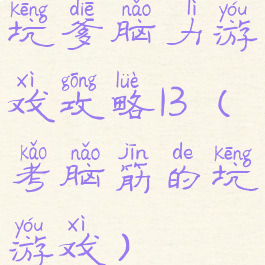 kēng diē nǎo lì yóu
坑爹脑力游
xì gōng lüè
戏攻略13（
kǎo nǎo jīn de kēng
考脑筋的坑
yóu xì
游戏）